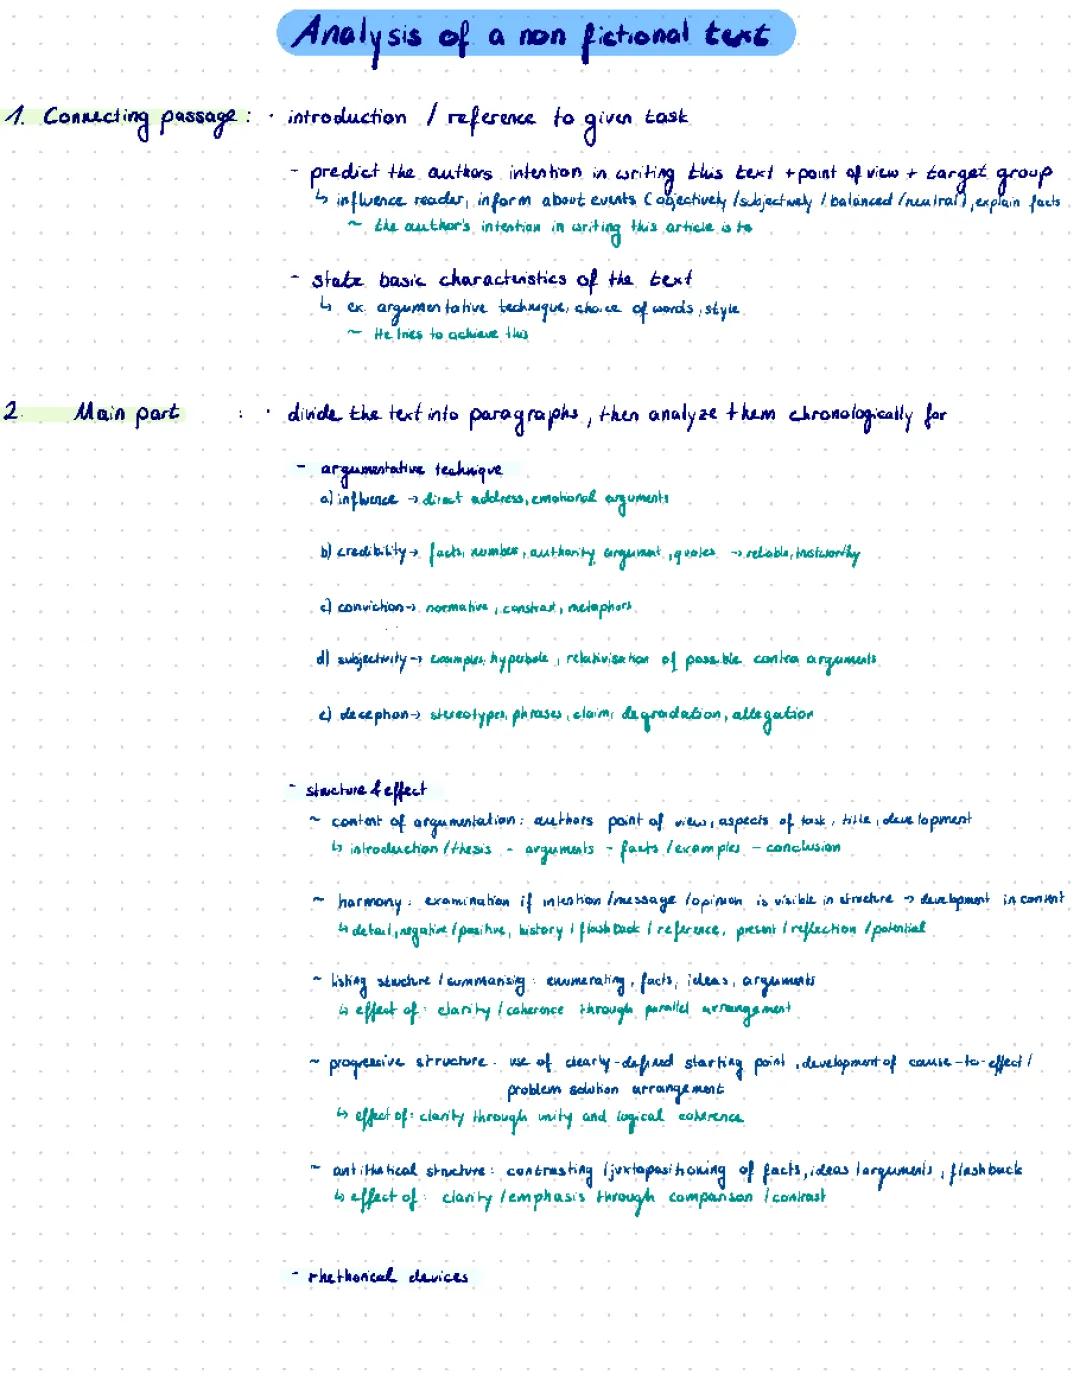 Analysis of a non fictional text
1. Connecting passage: · introduction / reference to given task
- predict the authors intention in writing this text + point of view + target group
↳ influence reader, inform about events (objectively / subjectively / balanced / neutral), explain facts
~ the author's intention in writing this article is to
- state basic characteristics of the text
↳ ex. argumentative technique, choice of words, style
~ He tries to achieve this
2. Main part : · divide the text into paragraphs, then analyze them chronologically for
- argumentative technique
a) influence → direct address, emotional arguments
b) credibility → facts, number, authority argument, quotes → reliable, trustworthy
c) conviction → normative, contrast, metaphors
d) subjectivity → examples, hyperbole, relativisation of possible contra arguments
e) deception → stereotypes, phrases, claim, degradation, allegation
- structure & effect
~ content of argumentation: authors point of view, aspects of task, title, development
↳ introduction / thesis - arguments - facts / examples - conclusion
~ harmony: examination if intention / message / opinion is visible in structure → development in content
↳ detail, negative / positive, history / flashback / reference, present / reflection / potential
~ listing structure / summarising: enumerating, facts, ideas, arguments
↳ effect of: clarity / coherence through parallel arrangement
~ progressive structure: use of clearly-defined starting point, development of cause-to-effect /
problem solution arrangement
↳ effect of: clarity through unity and logical coherence
~ antithetical structure: contrasting / juxtapositioning of facts, ideas / arguments, flashback
↳ effect of: clarity / emphasis through comparison / contrast
- rhethorical devices